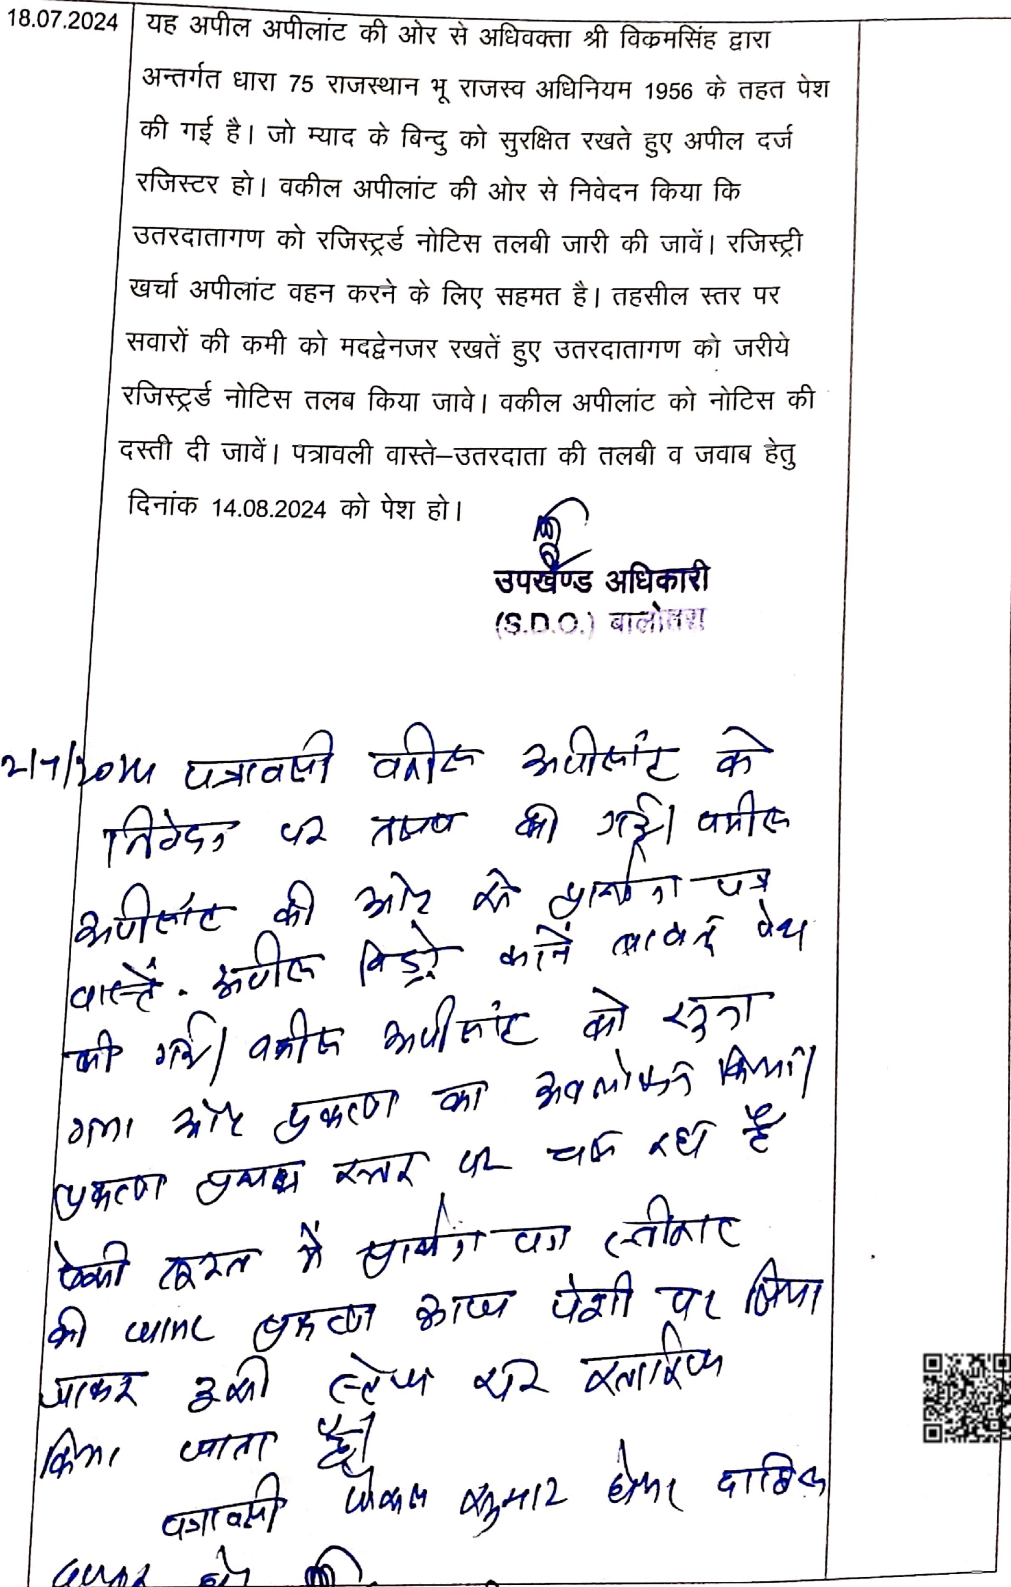 18.07.2024 यह अपील अपीलांट की ओर से अधिवक्ता श्री विक्रमसिंह द्वारा
अन्तर्गत धारा 75 राजस्थान भू राजस्व अधिनियम 1956 के तहत पेश
की गई है। जो म्याद के बिन्दु को सुरक्षित रखते हुए अपील दर्ज
रजिस्टर हो। वकील अपीलांट की ओर से निवेदन किया कि
उतरदातागण को रजिस्ट्रर्ड नोटिस तलबी जारी की जावें। रजिस्ट्री
खर्चा अपीलांट वहन करने के लिए सहमत है। तहसील स्तर पर
सवारों की कमी को मदद्वेनजर रखतें हुए उतरदातागण को जरीये
रजिस्ट्रर्ड नोटिस तलब किया जावे। वकील अपीलांट को नोटिस की
दस्ती दी जावें। पत्रावली वास्ते–उतरदाता की तलबी व जवाब हेतु
दिनांक 14.08.2024 को पेश हो।
उपखण्ड अधिकारी
(S.D.O.) बालोतरा
पत्रावली वकील अपीलांट के
निवेदन पर तलब की गई। वकील
अपीलांट की ओर से प्रार्थना पत्र
वास्ते अपील विड्रो करने बाबत् पेश
की गई। वकील अपीलांट को सुना
गया और प्रकरण का अवलोकन किया।
प्रकरण प्रथम स्तर पर चल रहा है
ऐसी सूरत में प्रार्थना पत्र स्वीकार
की जाकर प्रकरण आज पेशी पर लिया
जाकर इसी स्टेज पर खारिज
किया जाता है।
पत्रावली फैसल शुमार होकर दाखिल
दफ्तर हो